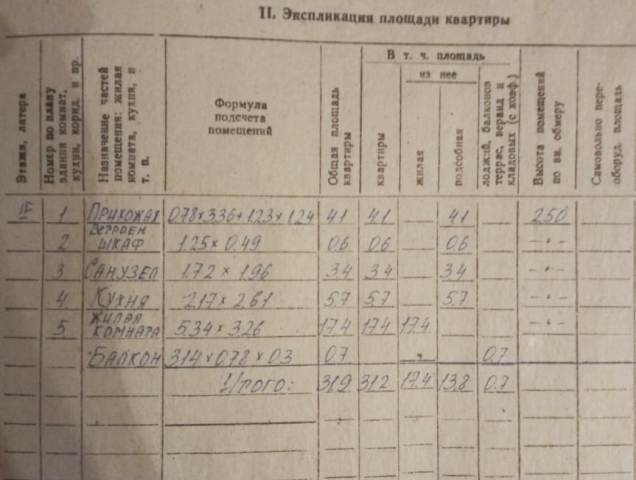 II. Экспликация площади квартиры
Этажи, литера
Номер по плану
здания комнат,
кухни, корид. и пр.
Назначение частей
помещения: жилая
комната, кухня, и
т. п.
Формула
подсчета
помещений
Общая площадь
квартиры
В т. ч. площадь
квартиры
из нее
жилая
подсобная
лоджий, балконов
террас, веранд и
кладовых (с коэф.)
Высота помещений
по вн. обмеру
Самовольно пере-
оборуд. площадь
IV 1 Прихожая 0.78×3.36+1.23×1.24 4.1 4.1 — 4.1 2.50
2 Встроен шкаф 1.25×0.49 0.6 0.6 — 0.6 -"-
3 Санузел 1.72×1.96 3.4 3.4 — 3.4 -"-
4 Кухня 2.17×2.61 5.7 5.7 — 5.7 -"-
5 Жилая комната 5.34×3.26 17.4 17.4 17.4 -"-
Балкон 3.14×0.78×0.3 0.7 0.7
Итого: 31.9 31.2 17.4 13.8 0.7